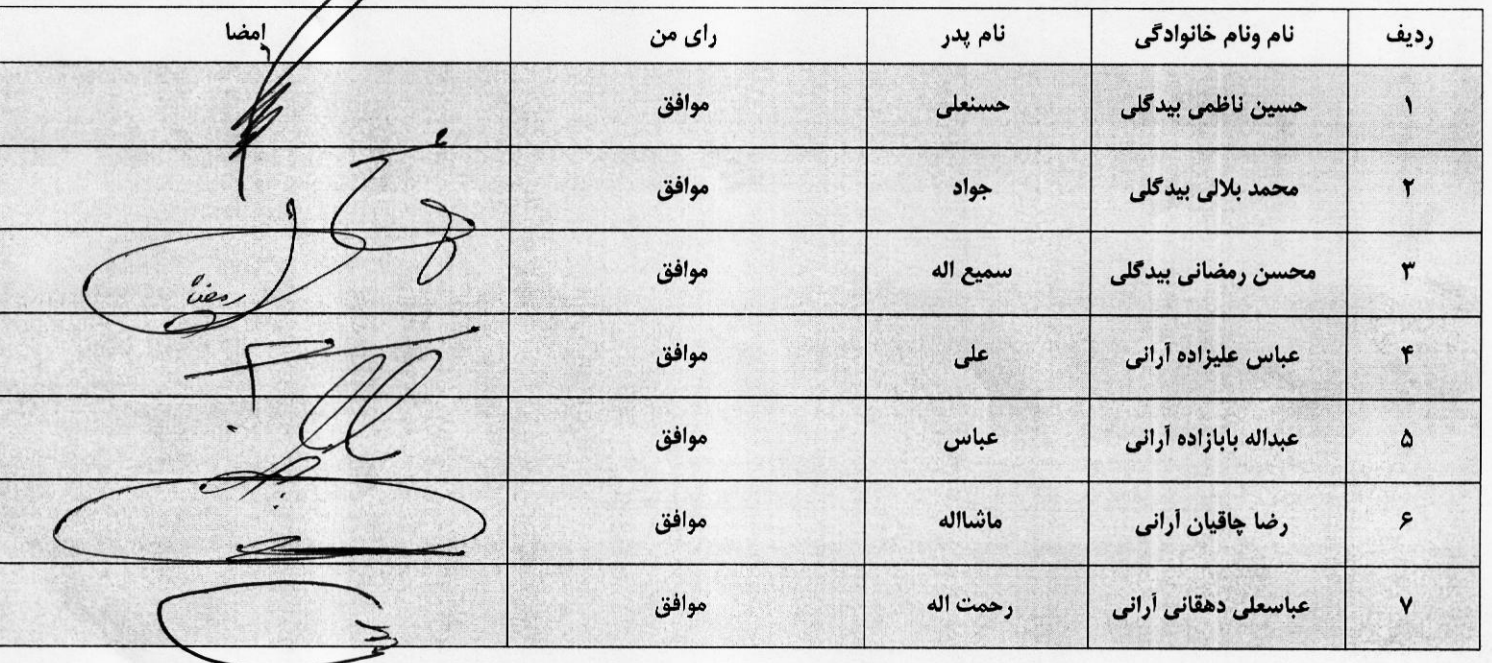 ردیف نام ونام خانوادگی نام پدر رای من امضا
۱ حسین ناظمی بیدگلی حسنعلی موافق
۲ محمد بلالی بیدگلی جواد موافق
۳ محسن رمضانی بیدگلی سمیع اله موافق
۴ عباس علیزاده آرانی علی موافق
۵ عبداله بابازاده آرانی عباس موافق
۶ رضا چاقیان آرانی ماشااله موافق
۷ عباسعلی دهقانی آرانی رحمت اله موافق